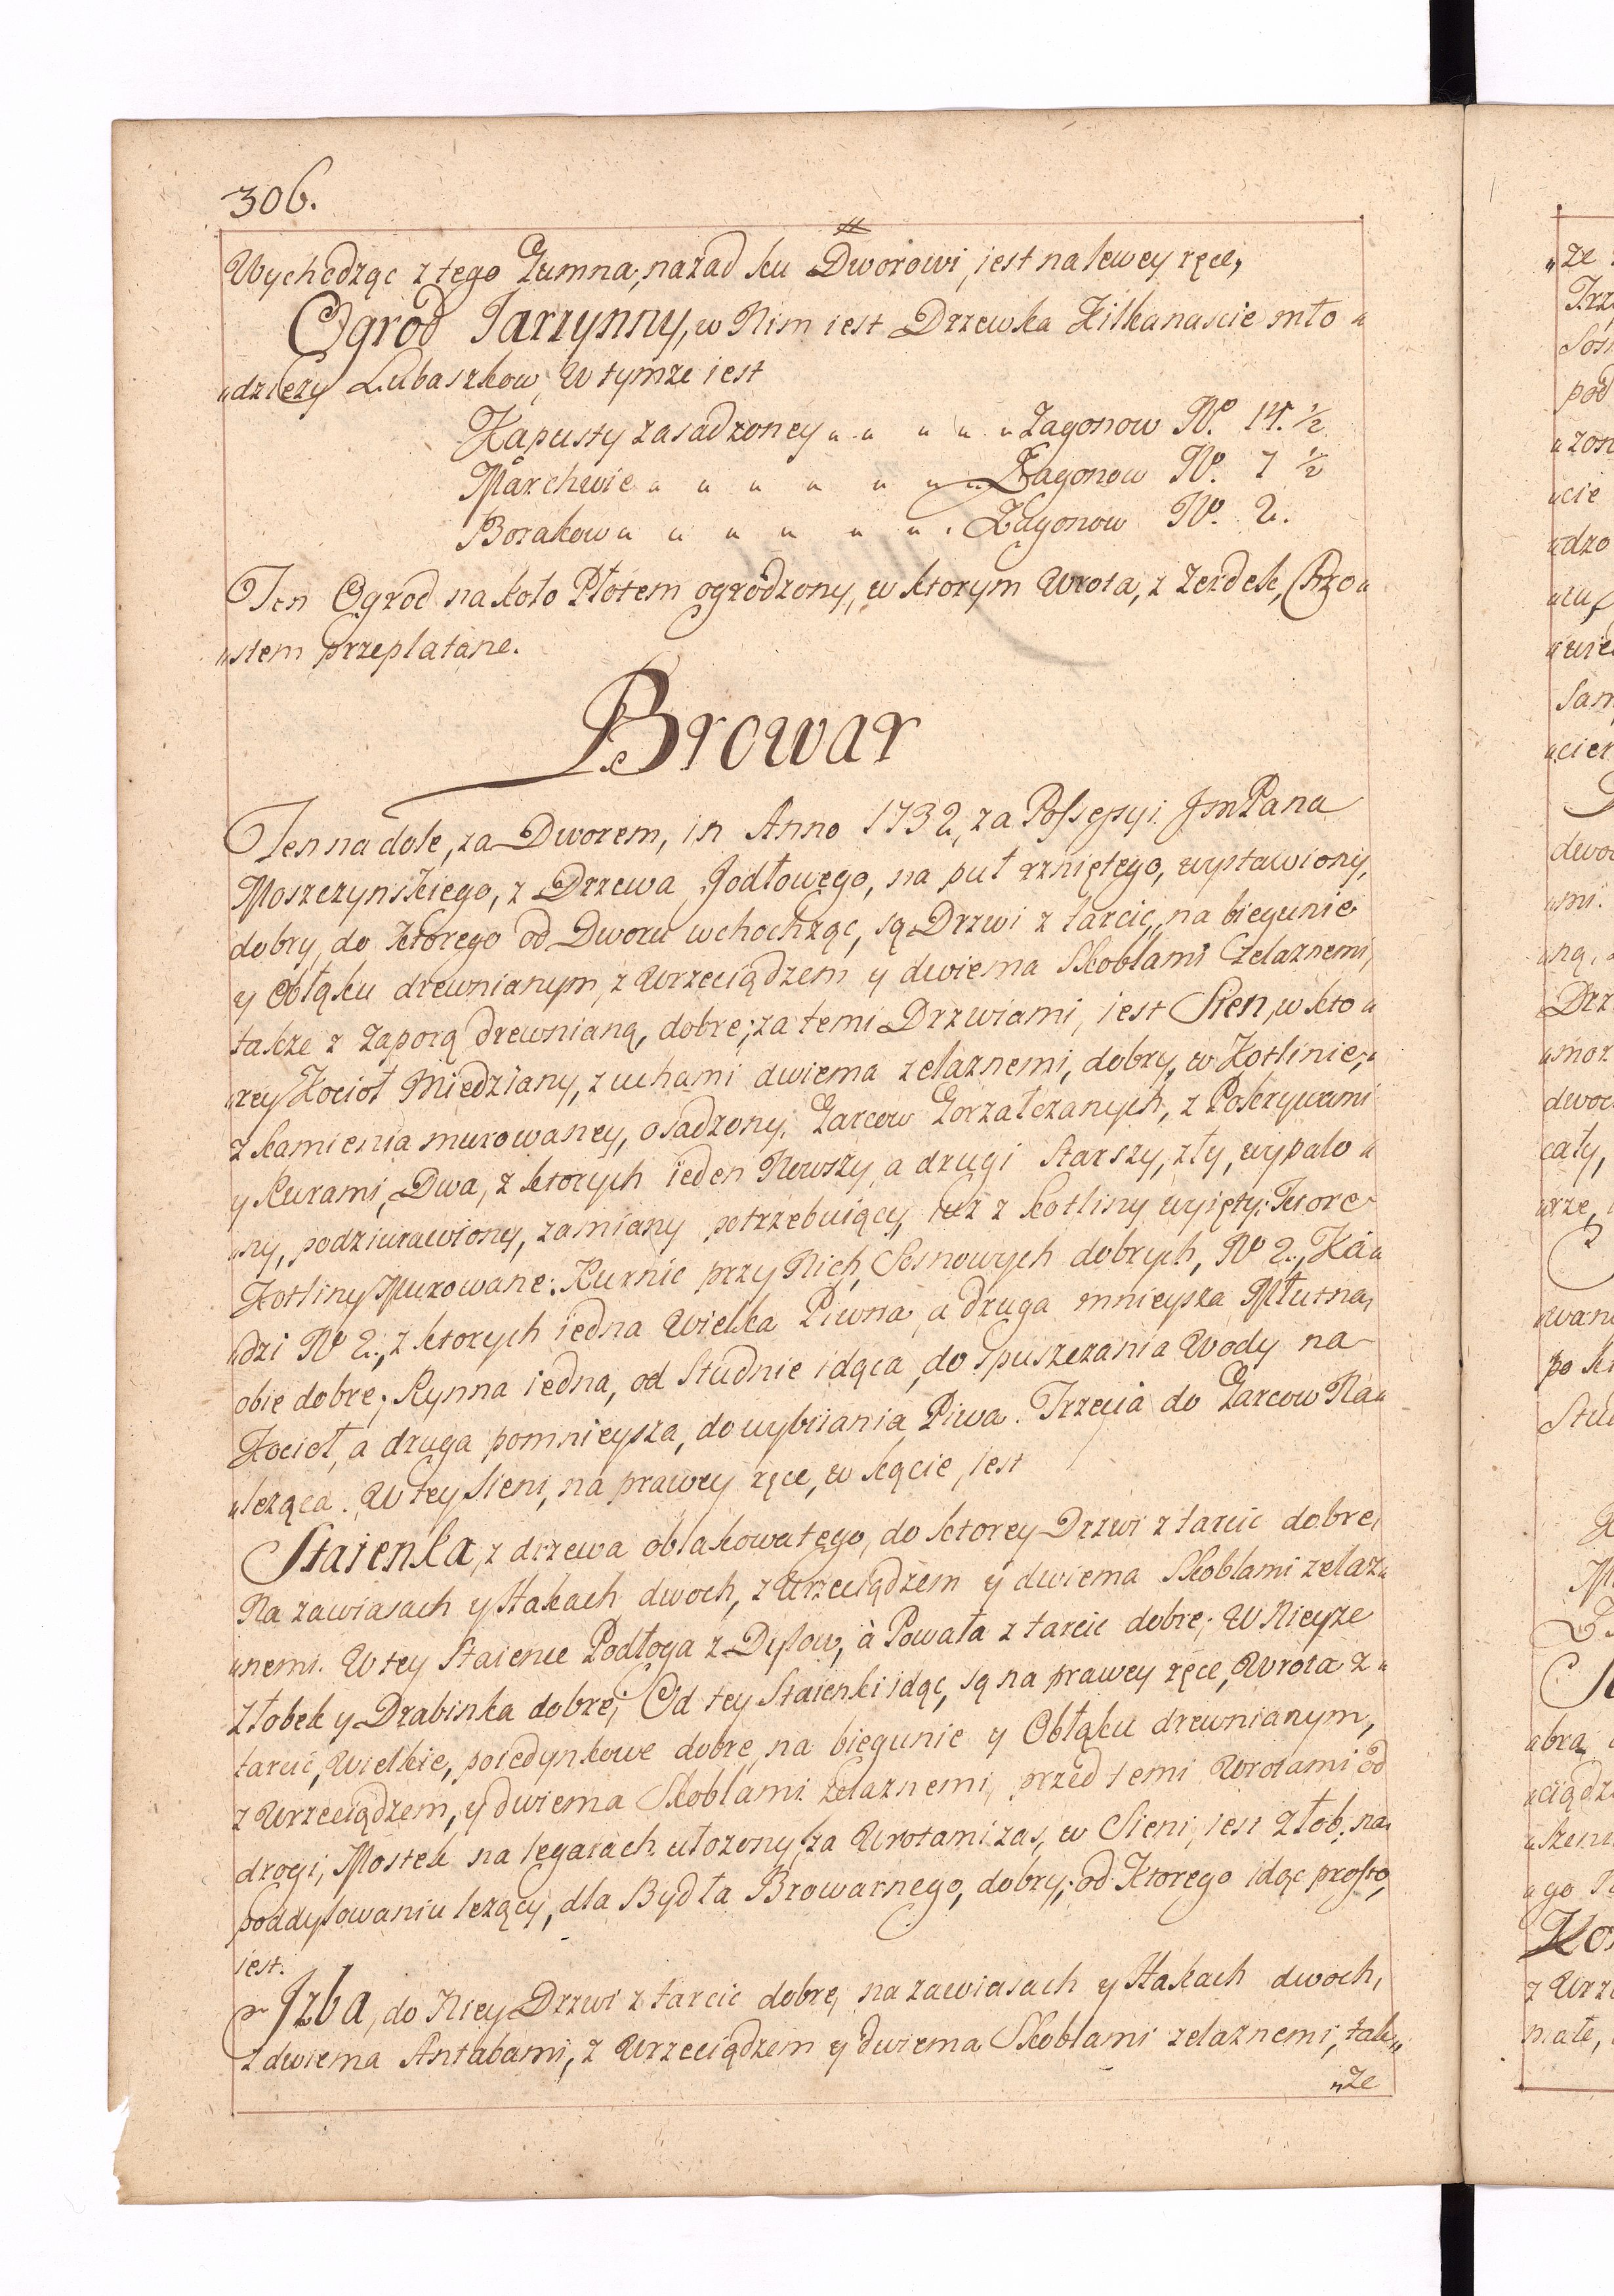 306.
Wychodząc z tego Gumna, nazad ku Dworowi, jest na lewey ręce,
Ogrod Jarzynny, w Nim iest Drzewka Kilkanascie mło„
„dziezy Lubaszkow, W tymze iest
Kapusty zasadzoney „ „ „ „ „ Zagonow No. 14. ½
Marchwie „ „ „ „ „ „ Zagonow No. 7 ½
Borakow „ „ „ „ „ „ . Zagonow No. 2.
Ten Ogrod na koło Płotem ogrodzony, w ktorym Wrota, z Zerdek, Chro„
„stem przeplatane.
Browar
Ten na dole, za Dworem, in Anno 1732, za Possessyi JmPana
Moszczynskiego, z Drzewa Jodłowego, na puł rzniętego, wystawiony,
dobry, do ktorego od Dworu wchodząc, są Drzwi z tarcic, na biegunie
y Obłąku drewnianym, z Wrzeciądzem y dwiema Skoblami Zelaznemi,
takze z Zaporą drewnianą, dobre; za temi Drzwiami, iest Sien, w kto„
„rey Kocioł Miedziany, z uchami dwiema zelaznemi, dobry, w Kotlinie,„
z kamienia murowaney, osadzony. Garcow Gorzałczanych, z Pokrywami
y Rurami, Dwa, z ktorych ieden Nowszy, a drugi Starszy, zły, wypalo„
„ny, podziurawiony, zamiany potrzebuiący, iuż z kotliny wyięty: Ktore
Kotliny Murowane: Rurnic przy Nich, Sosnowych dobrych, No 2., Ka„
„dzi No 2., z ktorych iedna Wielka Piwna, a druga mnieysza Młutna,
obie dobre; Rynna iedna, od Studnie idąca, do spuszczania Wody na
Kocioł, a druga pomnieysza, do wybiiania Piwa. Trzecia do Garcow Na„
„leząca. W tey Sieni, na prawey ręce, w kącie, jest
Staienka, z drzewa obłakowatego, do ktorey Drzwi z tarcic dobre,
Na zawiasach y Hakach dwoch, z Wrzeciądzem y dwiema Skoblami zelaz„
„nemi. W tey Staience Podłoga z Dylow, à Powała z tarcic dobre; W Nieyze
Złobek y Drabinka dobre; Od tey Staienki idąc, są na prawey ręce, Wrota z„
tarcic, Wielkie, poiedynkowe dobre, na biegunie y Obłąku drewnianym,
z Wrzeciądzem, y dwiema Skoblami Zelaznemi, przed temi Wrotami od
drogi, Mostek na legarach ułozony, za Wrotami zas, w Sieni, iest Złob, na
poddylowaniu lezący, dla Bydła Browarnego, dobry; od Ktorego idąc prosto,
iest.
Izba, do Niey Drzwi z tarcic dobre, na zawiasach y Hakach dwoch,
z dwiema Antabami, z Wrzeciądzem y dwiema Skoblami zelaznemi, tak„
„ze